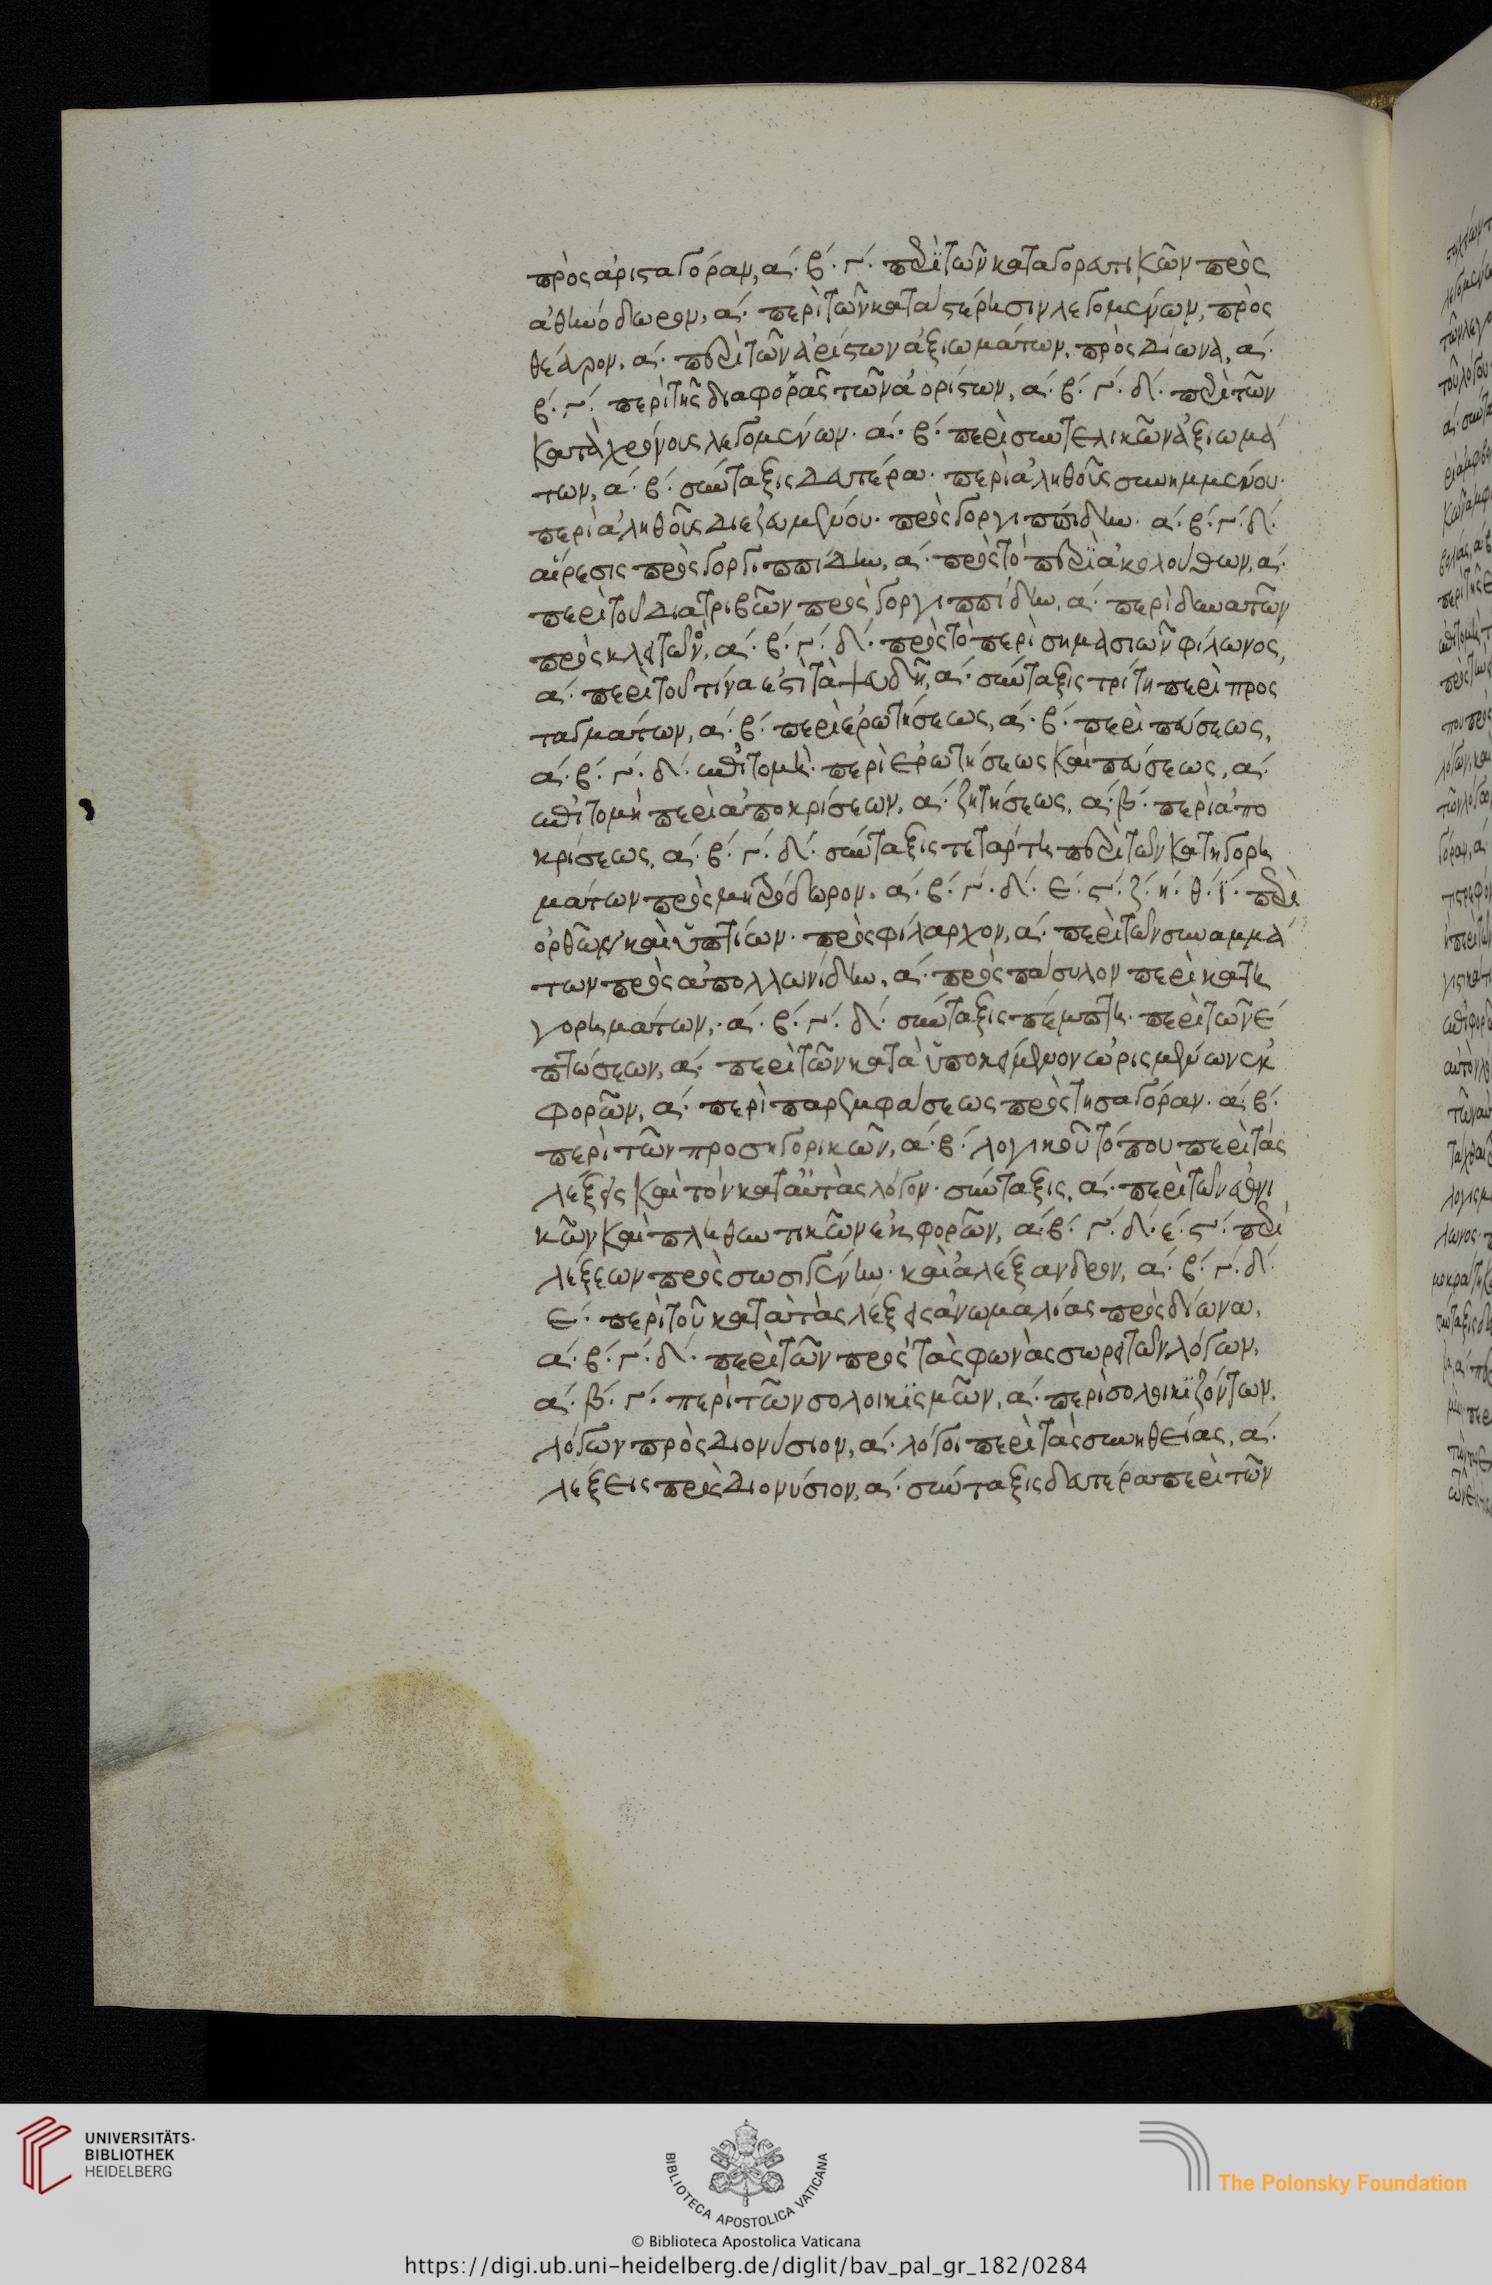 πρὸς ἀρισταγόραν, α΄. β΄. γ΄. περὶ τῶν καταγοραπικῶν πρὸς
ἀθηνόδωρον, α΄. περὶ τῶν κατὰ στέρησιν λεγομένων, πρὸς
θέαρον. α΄. περὶ τῶν ἀρίστων ἀξιωμάτων. πρὸς Δίωνα, α΄.
β΄. γ΄. περὶ τῆς διαφορᾶς τῶν ἀορίστων, α΄. β΄. γ΄. δ΄. περὶ τῶν
κατὰ χρόνους λεγομένων. α΄. β΄. περὶ συντελικῶν ἀξιωμά
των, α΄. β΄. σύνταξις δευτέρα. περὶ ἀληθοῦς συνημμένου.
περὶ ἀληθοῦς διεζευμένου. πρὸς γοργιππίδην. α΄. β΄. γ΄. δ΄.
αἵρεσις πρὸς γοργιππίδην, α΄. πρὸς τὸ περὶ ἀκολούθων, α΄.
περὶ τοῦ διατριβῶν πρὸς γοργιππίδην, α΄. περὶ δυνατῶν
πρὸς κλεῖτον, α΄. β΄. γ΄. δ΄. πρὸς τὸ περὶ σημασιῶν φίλωνος,
α΄. περὶ τοῦ τίνα ἐστὶ τὰ ψευδῆ, α΄. σύνταξις τρίτη περὶ προς
ταγμάτων, α΄. β΄. περὶ ἐρωτήσεως, α΄. β΄. περὶ πεύσεως,
α΄. β΄. γ΄. δ΄. ἐπιτομὴ περὶ ἐρωτήσεως καὶ πεύσεως, α΄.
ἐπιτομὴ περὶ ἀποκρίσεων, α΄. ζητήσεως, α΄. β΄. περὶ ἀπο
κρίσεως, α΄. β΄. γ΄. δ΄. σύνταξις τετάρτη περὶ τῶν κατηγορη
μάτων πρὸς μητρόδωρον. α΄. β΄. γ΄. δ΄. ε΄. ϛ΄. ζ΄. η΄. θ΄. ι΄. περὶ
ὀρθῶν καὶ ὑπτίων. πρὸς φίλαρχον, α΄. περὶ τῶν συναμμά
των πρὸς ἀπολλωνίδην, α΄. πρὸς πάσυλον περὶ κατη
γορημάτων, α΄. β΄. γ΄. δ΄. σύνταξις πέμπτη. περὶ τῶν ε΄
πτώσεων, α΄. περὶ τῶν κατὰ ὑποκείμενον ὡρισμένων ἐκ
φορῶν, α΄. περὶ παρεμφάσεως πρὸς τησαγόραν. α΄. β΄.
περὶ τῶν προσηγορικῶν, α΄. β΄. λογικοῦ τόπου περὶ τὰς
λέξεις καὶ τὸν κατ' αὐτὰς λόγον. σύνταξις, α΄. περὶ τῶν ἑνι
κῶν καὶ πληθυντικῶν ἐκφορῶν, α΄. β΄. γ΄. δ΄. ε΄. ϛ΄. περὶ
λέξεων πρὸς σωσιγένην. καὶ ἀλέξανδρον, α΄. β΄. γ΄. δ΄.
ε΄. περὶ τοῦ κατὰ τὰς λέξεις ἀνωμαλίας πρὸς δίωνα,
α΄. β΄. γ΄. δ΄. περὶ τῶν πρὸς τὰς φωνὰς σωρειτῶν λόγων,
α΄. β΄. γ΄. περὶ τῶν σολοικϊσμῶν, α΄. περὶ σολοικϊζόντων.
λόγων πρὸς Διονύσιον, α΄. λόγοι περὶ τὰς συνηθείας, α΄.
λέξεις πρὸς Διονύσιον, α΄. σύνταξις δευτέρα περὶ τῶν
UNIVERSITÄTS-
BIBLIOTHEK
HEIDELBERG
BIBLIOTECA APOSTOLICA VATICANA
© Biblioteca Apostolica Vaticana
The Polonsky Foundation
https://digi.ub.uni-heidelberg.de/diglit/bav_pal_gr_182/0284